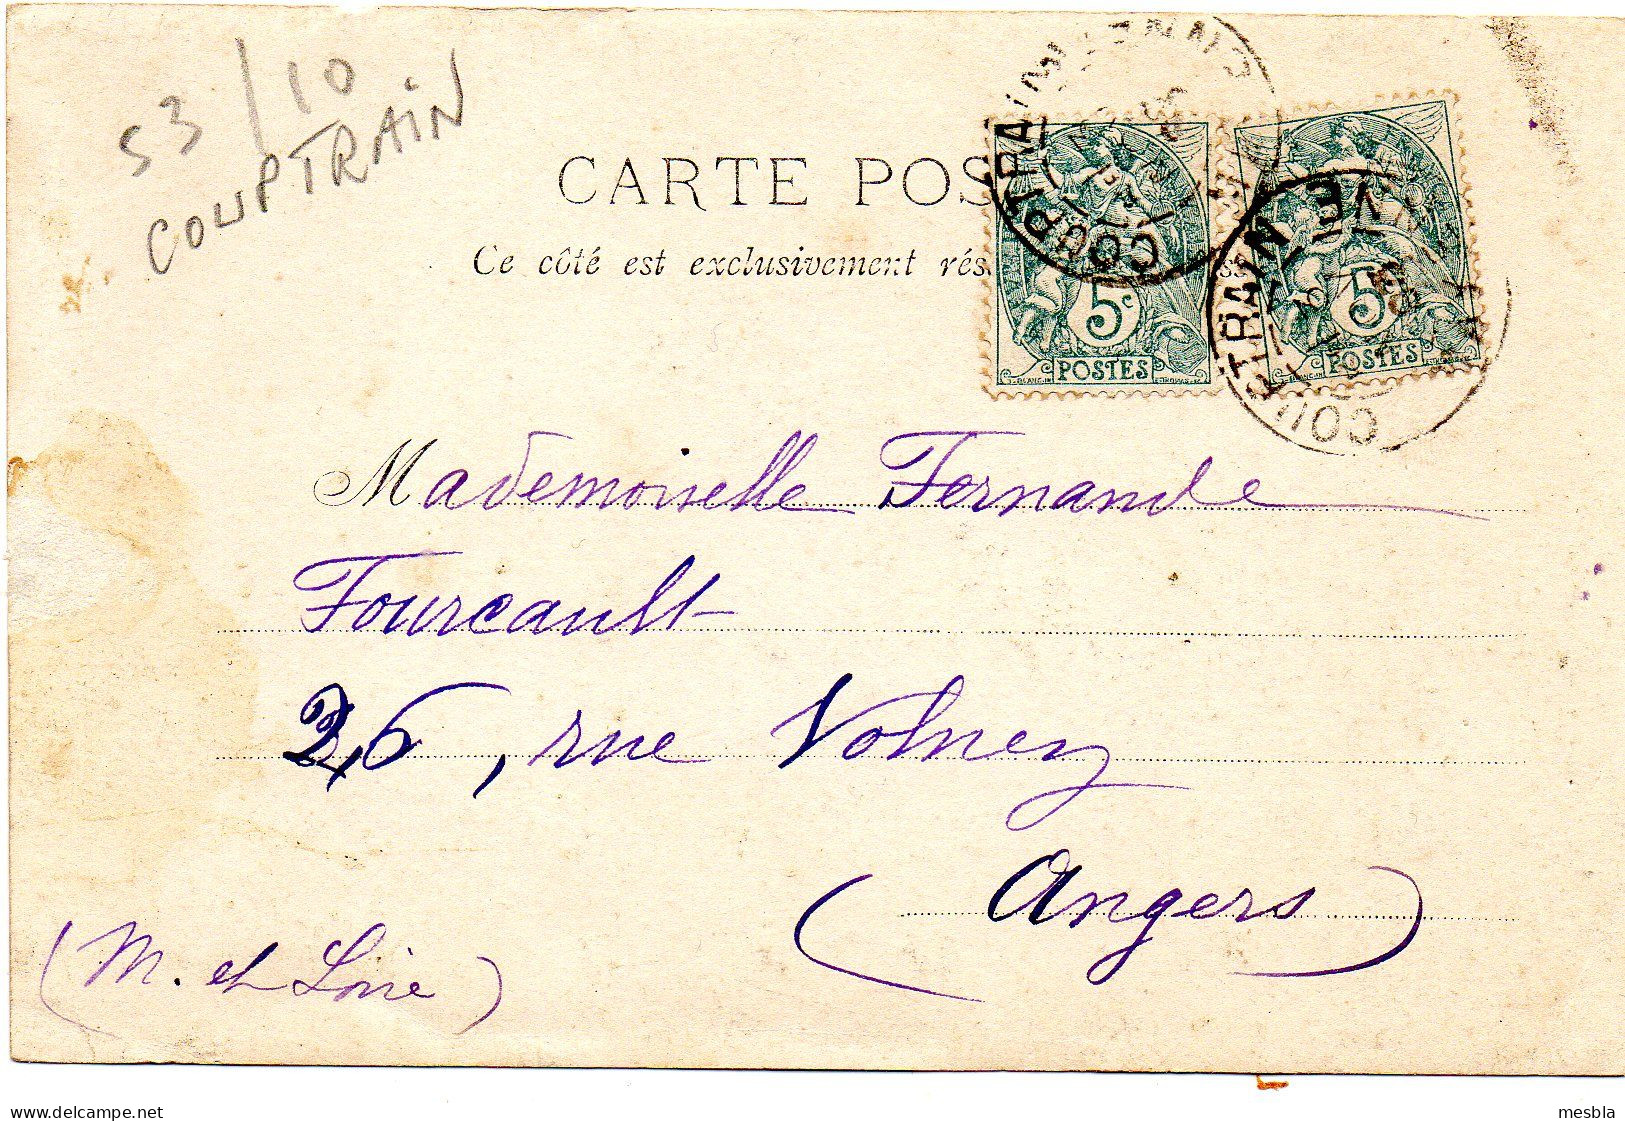 53/10
COUPTRAIN
CARTE POS
Ce côté est exclusivement rés
COUPTRAIN
5c
POSTES
COUPTRAIN
5
POSTES
Mademoiselle Fernande
Fourcault
26, rue Volney
(Angers)
(M. et Loire)
www.delcampe.net
mesbla